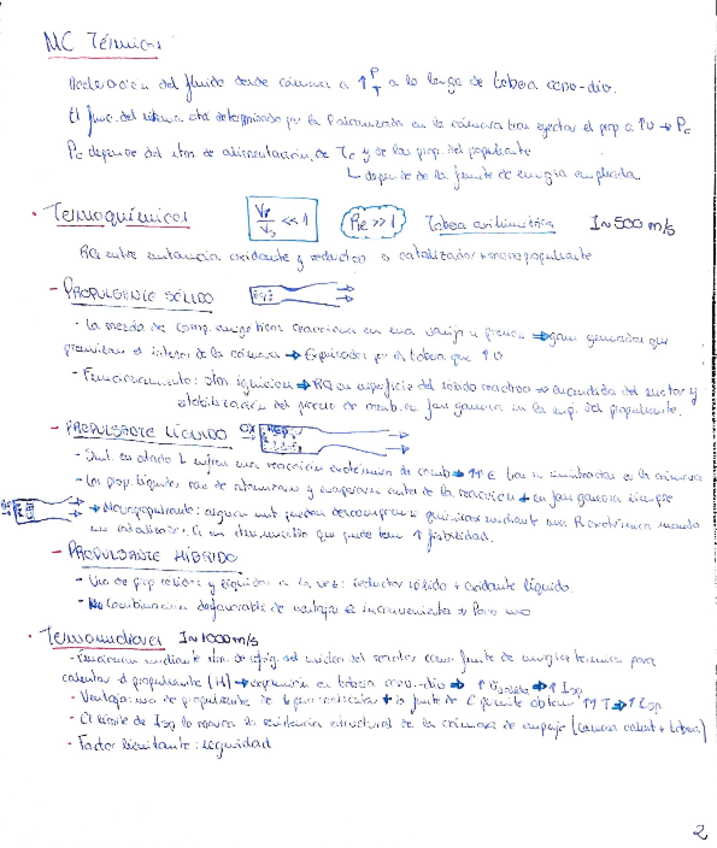 MC Térmicos
Aceleración del fluido desde cámara a ↑ P T a lo largo de tobera conv-div.
El func. del sistema está determinado por la en la cámara tras eyectar el prop a ↑U → Pc
Pc depende del stm de alimentación, de Tc y de las prop. del propulsante
↳ depende de la fuente de energía empleada.
· Termoquímicos Vp/Vs << 1 Re >> 1 Tobera axilsimétrica I~500 m/s
RQ entre sustancia oxidante y reductora o catalizador + monopropulsante
- PROPULSANTE SÓLIDO
- La mezcla de comp. energéticos reacciona en una a presión → gases generados que
presurizan el interior de la cámara → Eyectados por la tobera que ↑U
- Funcionamiento: stm. ignición → RQ en superficie del sólido reactivo → encendida del motor y
estabilización del proceso de comb. en fase gaseosa en la sup. del propulsante.
- PROPULSANTE LÍQUIDO OX RED
- Sust. en estado L sufren una reacción exotérmica de comb → ↑↑ E tras en la cámara
- Los prop. líquidos han de atomizarse y evaporarse antes de la reacción → en fase gaseosa siempre
→ Monopropulsante: alguna sust pueden descomponerse químicamente mediante una R exotérmica usando
un catalizador. Es un stm sencillo que puede tener ↑ fiabilidad.
- PROPULSANTE HÍBRIDO
- Uso de prop sólidos y líquidos a la vez: reductor sólido + oxidante líquido.
- Combinación desfavorable de ventajas e inconvenientes → Poco uso
· Termonucleares I~1000 m/s
- Funcionan mediante stm. de refrig. del núcleo del reactor como fuente de energía térmica para
calentar el propulsante (H) → expansión en tobera conv-div → ↑ Usalida → ↑ Isp
- Ventaja: uso de propulsante de ↓ peso molecular + la fuente de E permite obtener ↑↑ T → ↑ Isp
- El límite de Isp lo marca la resistencia estructural de la cámara de empuje (cámara calent + tobera)
- Factor limitante: seguridad
2